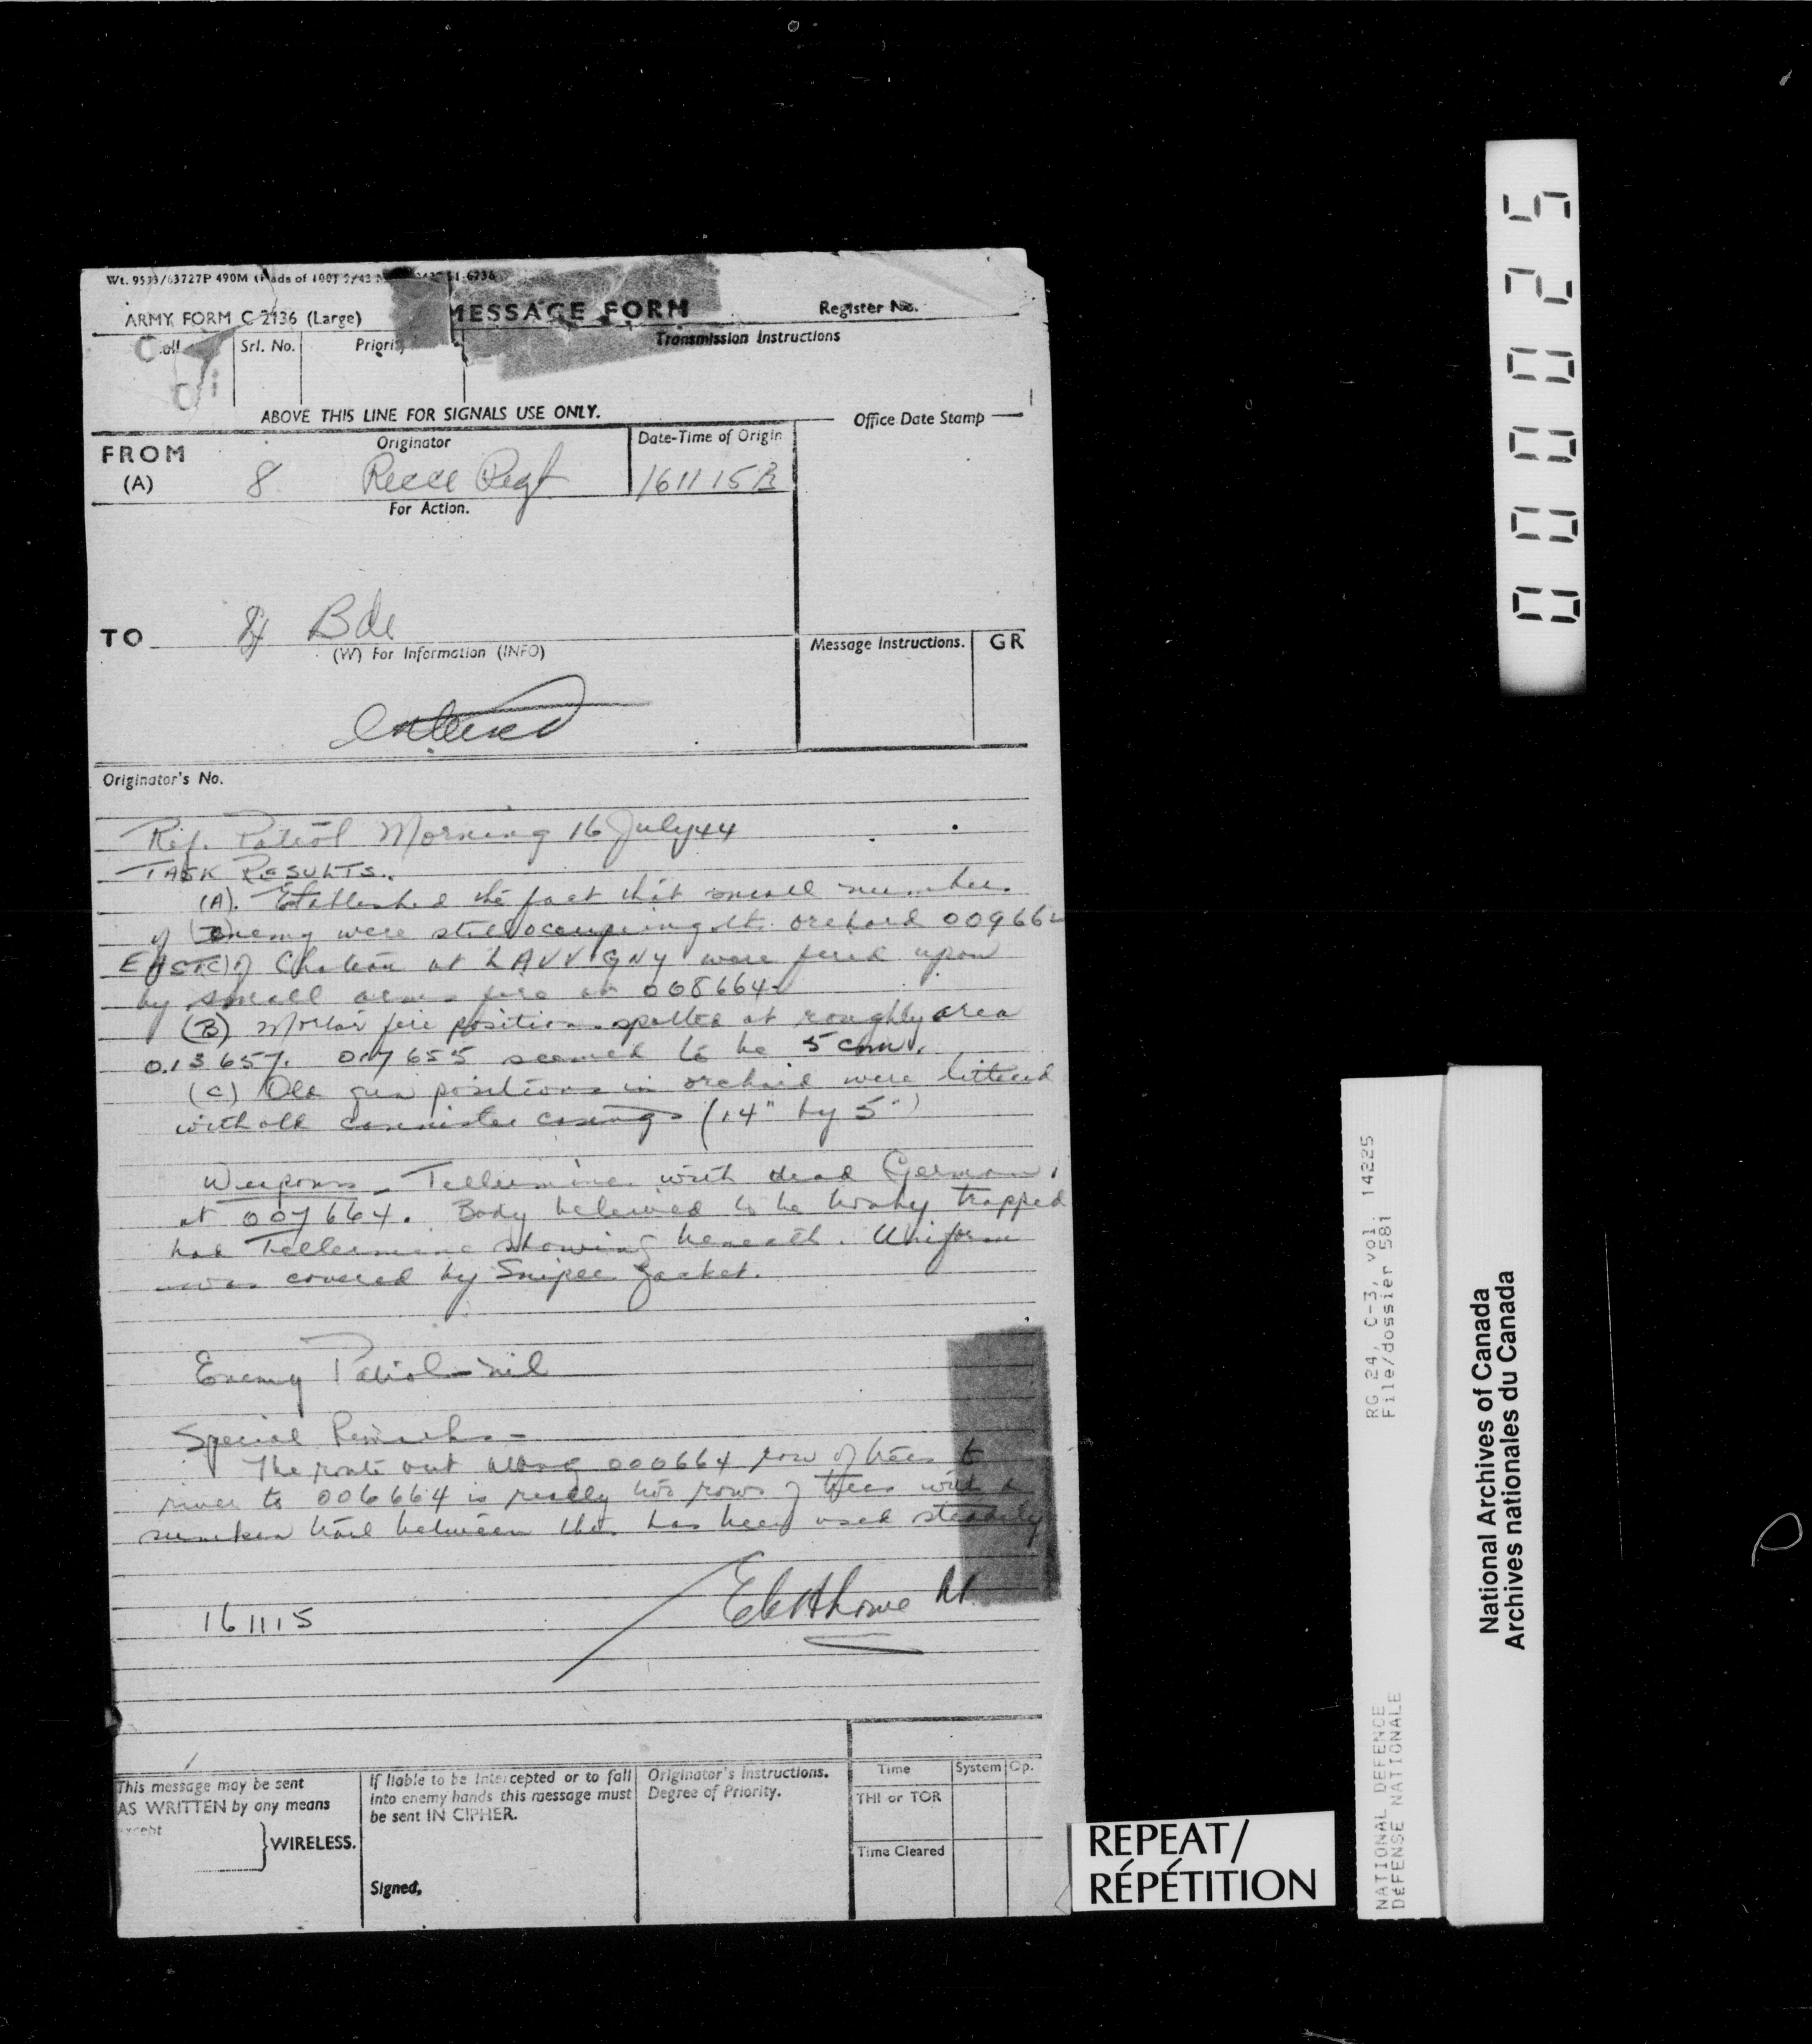 Wt. 9533/63727P 490M (Pads of 100) 9/43
ARMY FORM C 2136 (Large)
MESSAGE FORM
Register No.
Call
Srl. No.
Priority
Transmission Instructions
ABOVE THIS LINE FOR SIGNALS USE ONLY.
Office Date Stamp
FROM
(A)
Originator
8 Recce Regt
Date-Time of Origin
161115B
For Action.
TO
Bde
(W) For Information (INFO)
Message Instructions.
GR
Originator's No.
Ref. Patrol Morning 16 July 44
TASK RESULTS.
(A). Established the fact that small number
of enemy were still occupying the orchard 009664
EAST of Chateau at LAVVIGNY were fired upon
by small arms fire at 008664
(B) Mortar fire position spotted at roughly area
013657. 017655 seemed to be 5 cm.
(C) Old gun positions in orchard were littered
with old cannister casings (14" by 5")
Weapons - Tellermine with dead German
at 007664. Body believed to be booby trapped
had Tellermine showing beneath. Uniform
was covered by Sniper Jacket.
Enemy Patrol - nil
Special Remarks -
The route out along 000664 row of trees &
river to 006664 is really two rows of trees with a
sunken trail between has been used steadily
161115
This message may be sent
AS WRITTEN by any means
except
WIRELESS.
If liable to be intercepted or to fall
into enemy hands this message must
be sent IN CIPHER.
Signed,
Originator's Instructions.
Degree of Priority.
Time
System
Op.
THI or TOR
Time Cleared
REPEAT/
RÉPÉTITION
000025
RG 24, C-3, vol. 14225
File/dossier 581
NATIONAL DEFENCE
DÉFENSE NATIONALE
National Archives of Canada
Archives nationales du Canada